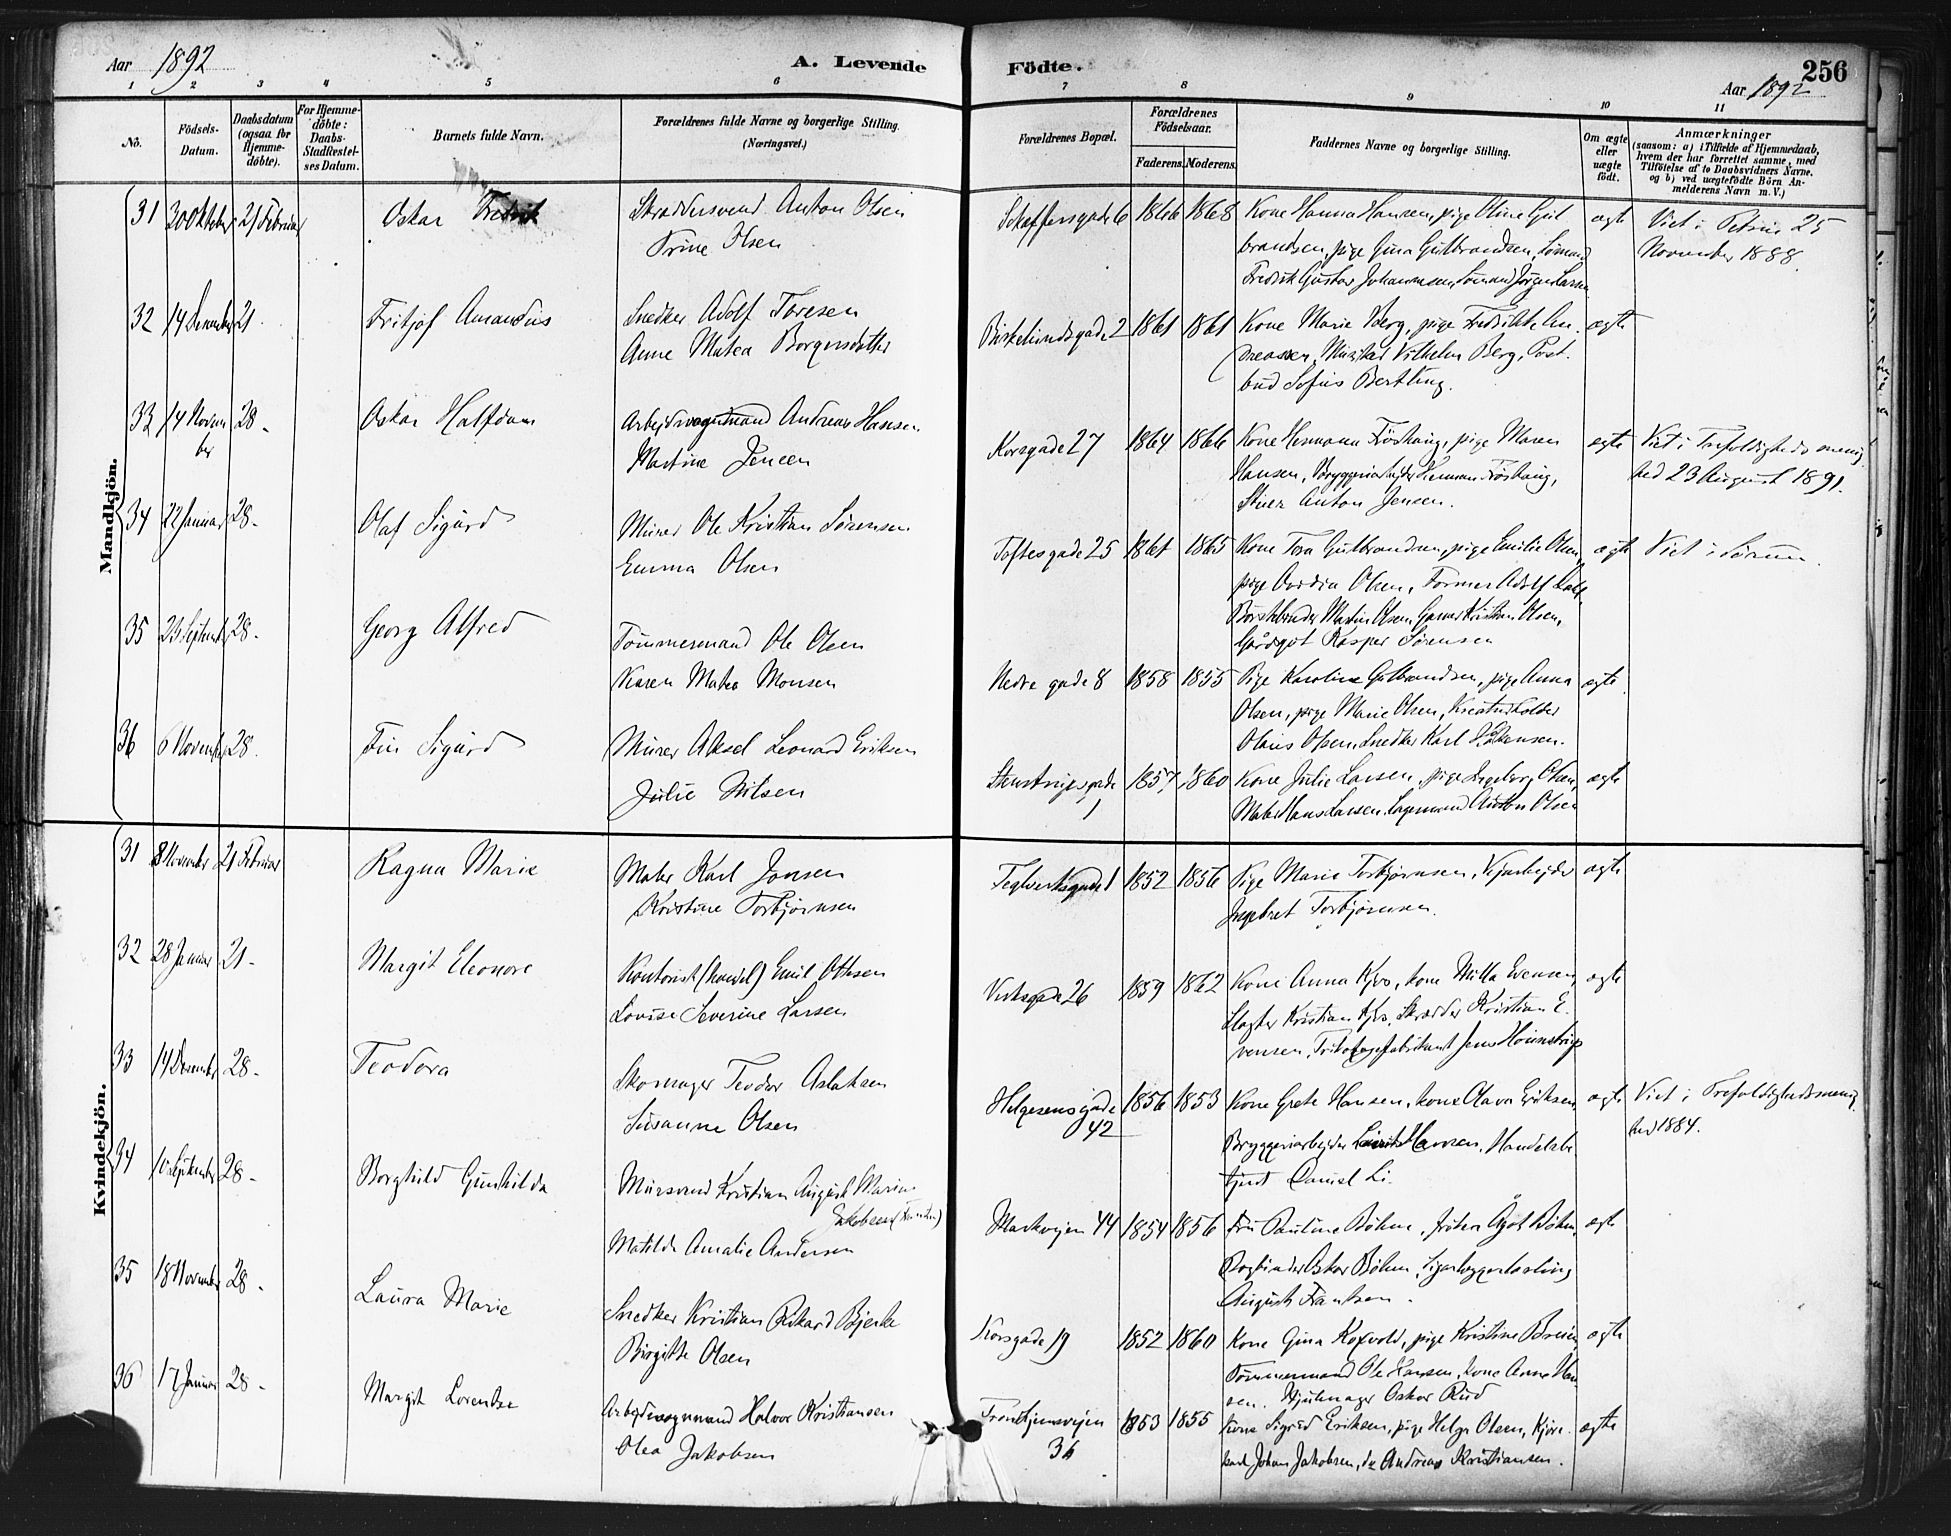 Aar 1892
A. Levende
Födte.
256
Aar 1892
1 2 3 4 5 6 7 8 9 10 11
No.
Födsels-Datum.
Daabsdatum (ogsaa for Hjemme-döbte).
For Hjemme-döbte: Daabs-Stadfæstel-ses Datum.
Barnets fulde Navn.
Forældrenes fulde Navne og borgerlige Stilling. (Næringsvei.)
Forældrenes Bopæl.
Forældrenes Födselsaar.
Faderens. Moderens.
Faddernes Navne og borgerlige Stilling.
Om ægte eller uægte födt.
Anmærkninger
(saasom: a) i Tilfælde af Hjemmedaab, hvem der har forrettet samme, med Tilföielse af to Daabsvidners Navne. og b) ved uægtefödte Börn An-melderens Navn m. V.)
Mandkjön.
31 30 Oktober 21 Februar Oskar Fredrik Skræddersvend Anton Olsen
Trine Olsen
Schæffersgade 6 1866 1868 Kone Hanna Hansen, pige Oline Gul
brandsen, pige Gina Gulbrandsen, Sømand
Fredrik Gustav Johannesen, Sømand Jørgen Larsen
ægte Viet i Petrus 25
November 1888.
32 14 December 21 Fritjof Amandus Snedker Adolf Toresen
Anne Matea Borgersdatter
Birkelundsgade 2 1861 1861 Kone Marie Berg, pige Fredrikke An
dreassen, Vilhelm Berg, Post-
bud Sofus Bertling.
ægte
33 14 Novem
ber 28 - Oskar Halfdan Arbejdsvognmand Andreas Hansen
Martine Jensen
Korsgade 27 1864 1866 Kone Hermana Frøshaug, pige Maren
Hansen, Bryggeriarbejder Herman Frøshaug,
Anton Jensen.
ægte Viet i Trefoldigheds menig
hed 23 August 1891.
34 22 Januar 28 - Olaf Sigurd Murer Ole Kristian Sørensen
Emma Olsen
Toftesgade 25 1861 1865 Kone Tora Gulbrandsen, pige Emilie Olsen,
pige Ovidia Olsen, Former Adolf
Børstebinder Martin Olsen, Kristian Olsen,
Gårdsgut Kasper Sørensen
ægte Viet i Sørum.
35 25 September 28 - Georg Alfred Tømmermand Ole Olsen
Karen Matea Monsen
Nedre gade 8 1858 1855 Pige Karoline Gulbrandsen, pige Anna
Olsen, pige Marie Olsen, Kreaturholder
Olaus Olsen, Snedker Karl
ægte
36 6 November 28. Fin Sigurd Murer Aksel Leonard Eriksen
Julie Nilsen
Stenstrupsgade
1 1857 1860 Kone Julie Larsen, pige Ingeborg Olsen,
Maler Hans Larsen, Anton Olsen
ægte
Kvindekjön.
31 8 November 21 Februar Ragna Marie Maler Karl Jonsen
Kristine Torbjørnsen
Teglverksgade 1 1852 1856 Pige Marie Torbjørnsen, Vejarbejder
Ingebret Torbjørnsen.
ægte
32 28 Januar 21 - Margit Eleonore Kontorist (handel) Emil Ottesen
Lovise Severine Larsen
Verksgade 26 1859 1862 Kone Anna Kjos, kone Milla Evensen,
Slagter Kristian Kjos, Skrædder Kristian E
vensen, Trikotagefabrikant Jens
ægte
33 14 December 28 - Teodora Skomager Teodor Aslaksen
Susanne Olsen
Helgesensgade
42 1856 1853 Kone Grete Hansen, kone Olava Eriksen,
Bryggeriarbejder Hansen, Handelsbe
tjent Daniel Li.
ægte Viet i Trefoldighedsmenig
hed 1884.
34 10 September 28 - Borghild Gunhilda Mursvend Kristian August Marius
Jakobsen (Frantsen)
Matilde Amalie Andersen
Markvejen 44 1854 1856 Fru Pauline Bøhm, frøken Ågot Bøhm,
Bogbinder Oskar Bøhm,
August Frantsen.
ægte
35 18 November 28 - Laura Marie Snedker Kristian Rikard Bjerke
Birgitte Olsen
Korsgade 19 1852 1860 Kone Gina Kopvold, pige Kristine Bruun,
Tømmermand Ole Hansen, kone Anne Han
sen, Hjulmager Oskar Rud
ægte
36 17 Januar 28 - Margit Lorentze Arbejdsvognmand Halvor Kristiansen
Olea Jakobsen
Trondhjemsvejen
36 1853 1855 Kone Sigrid Eriksen, pige Helga Olsen, Kjøre
karl Johan Jakobsen, do Andreas Kristiansen.
ægte